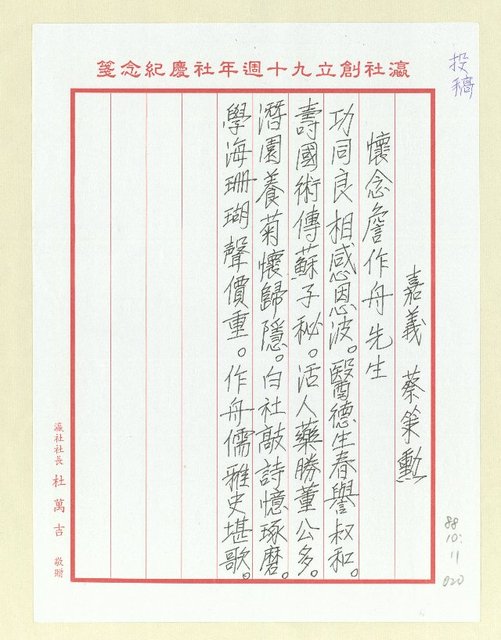 瀛社創立九十週年社慶紀念箋
投稿
嘉義 蔡策勳
懷念詹作舟先生
功同良相感恩波。醫德生春譽叔和。
壽國術傳蘇子秘。活人藥勝董公多。
潛園養菊懷歸隱。白社敲詩憶琢磨。
學海珊瑚聲價重。作舟儒雅史堪歌。
瀛社社長 杜萬吉 敬贈
88
10.
11
020